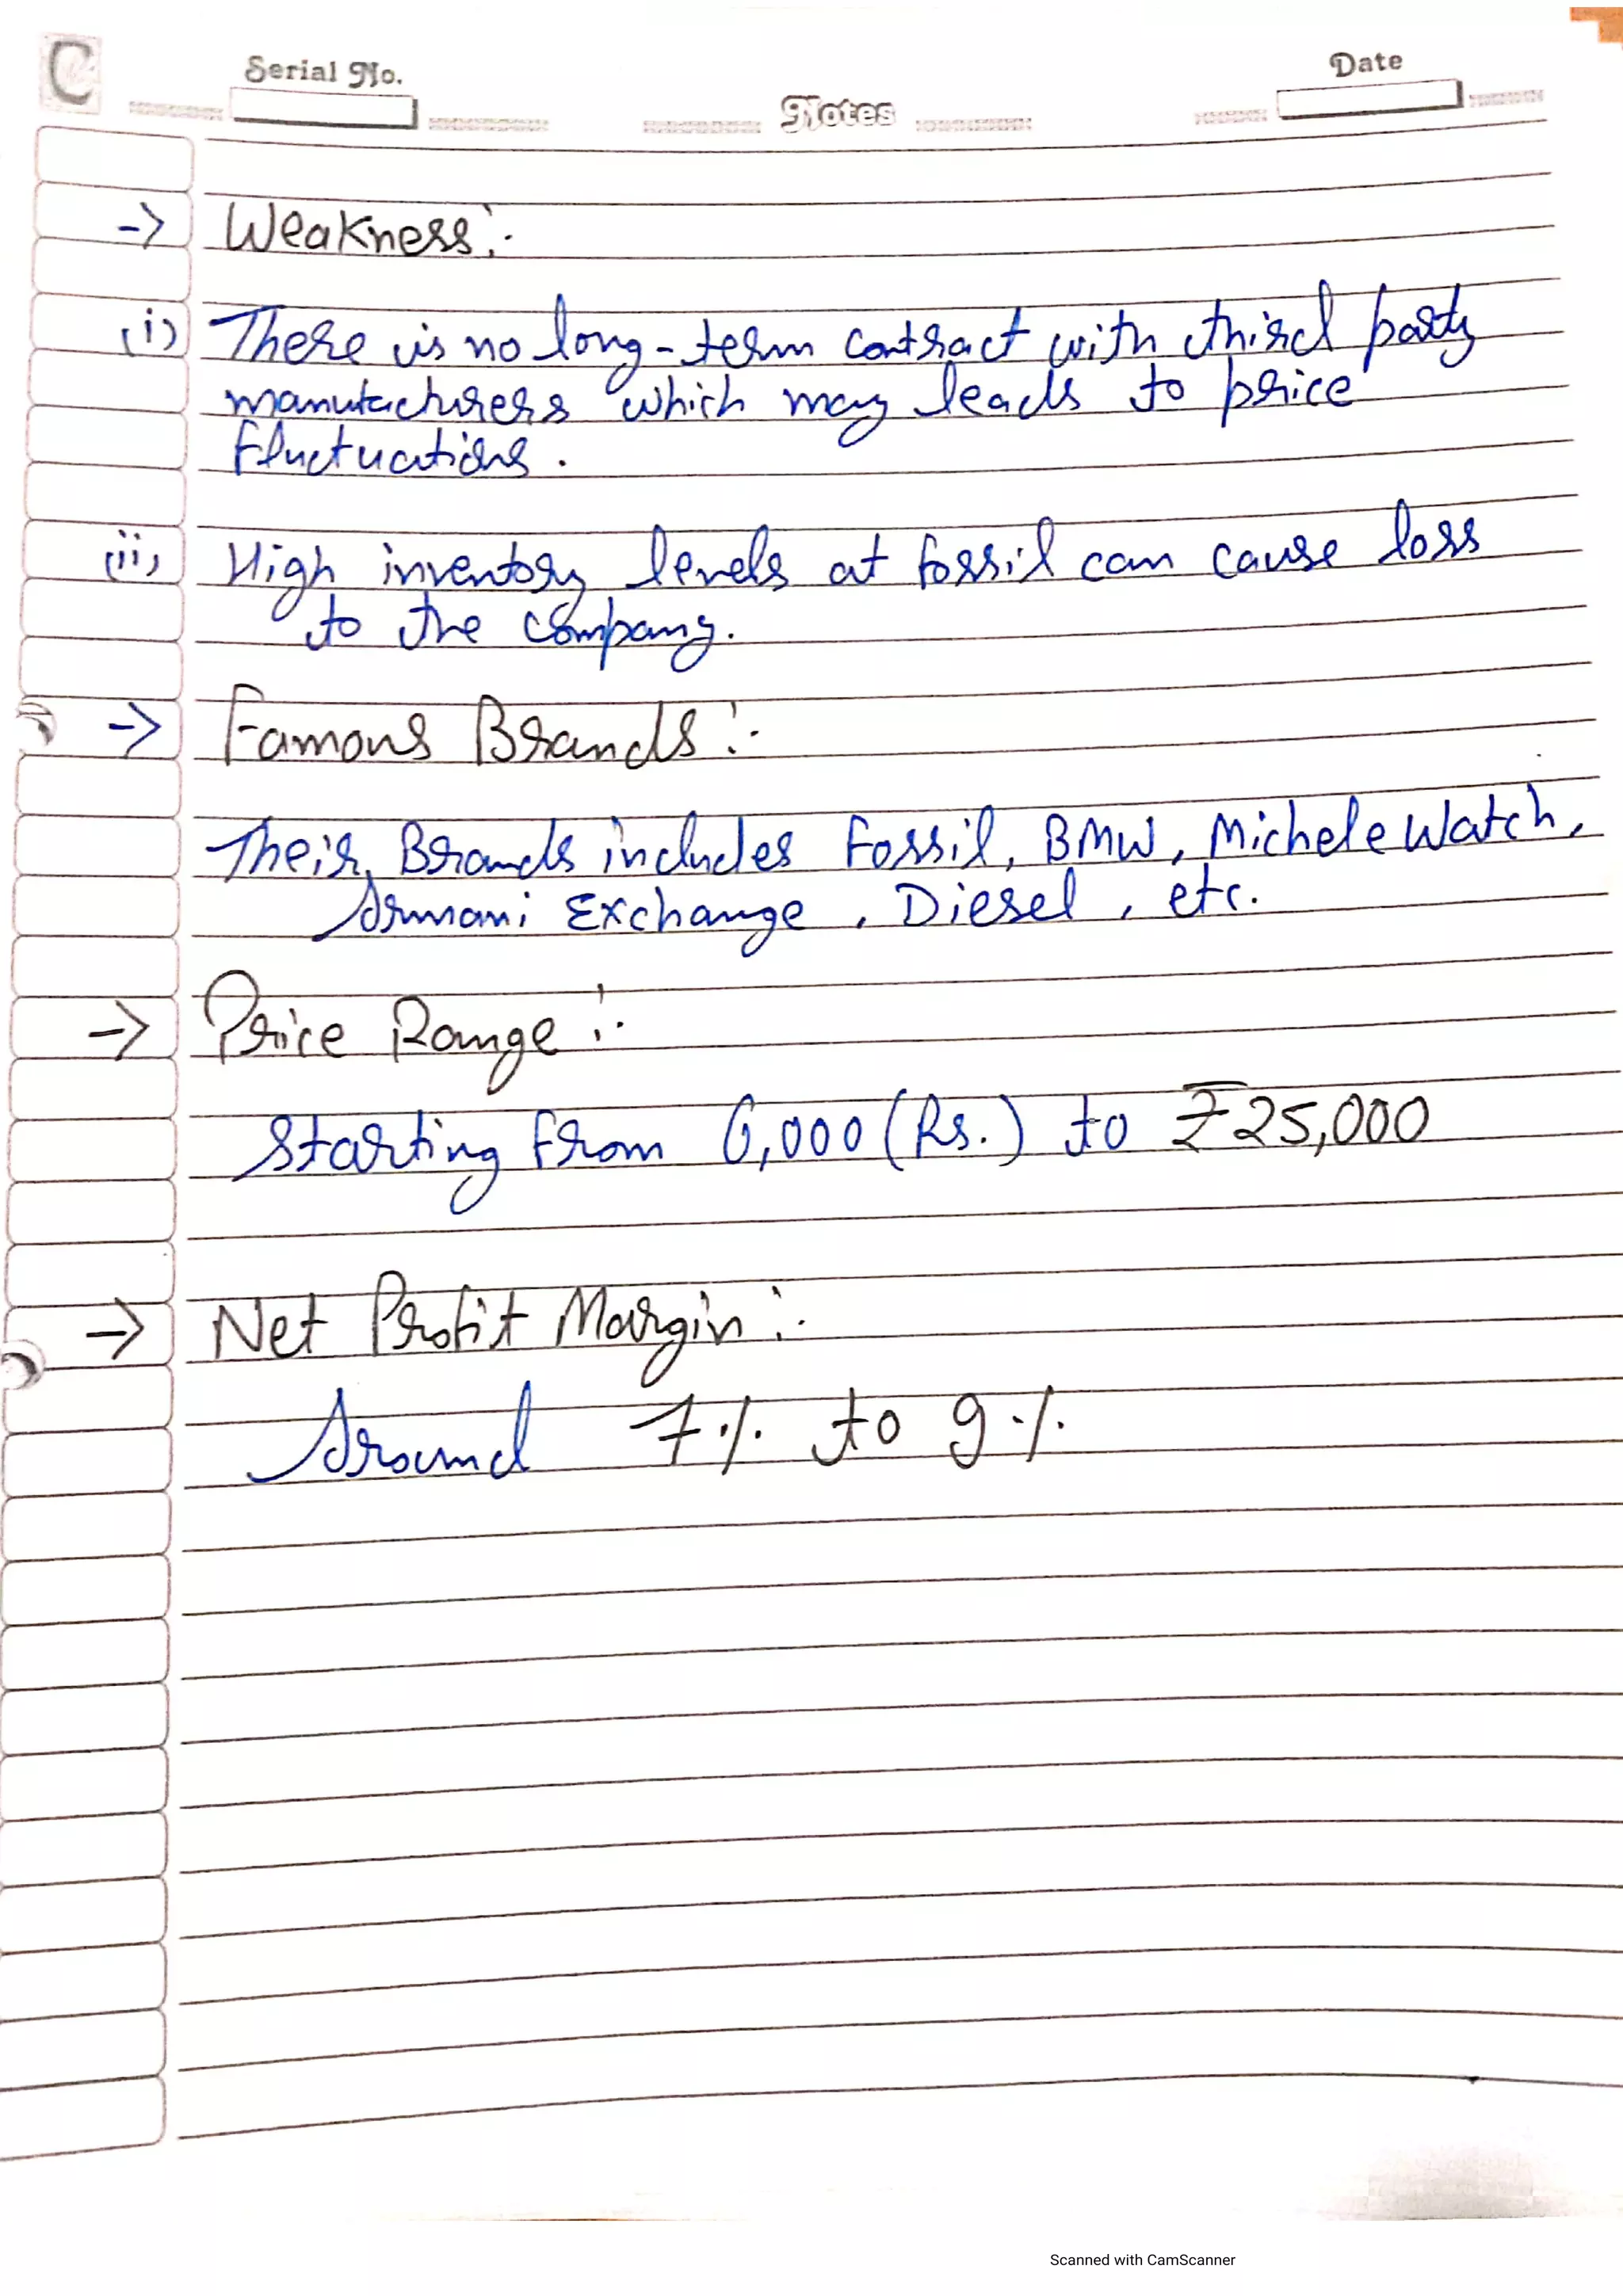 C
Serial No.
Notes
Date
-> Weakness:-
(i) There is no long-term contract with third party
manufacturers which may leads to price
Fluctuations.
(ii) High inventory levels at fossil can cause loss
to the company.
-> Famous Brands:-
Their Brands includes Fossil, BMW, Michele Watch,
Armani Exchange, Diesel, etc.
-> Price Range:-
Starting From 6,000 (Rs.) to ₹25,000
-> Net Profit Margin:-
Around 7% to 9%
Scanned with CamScanner